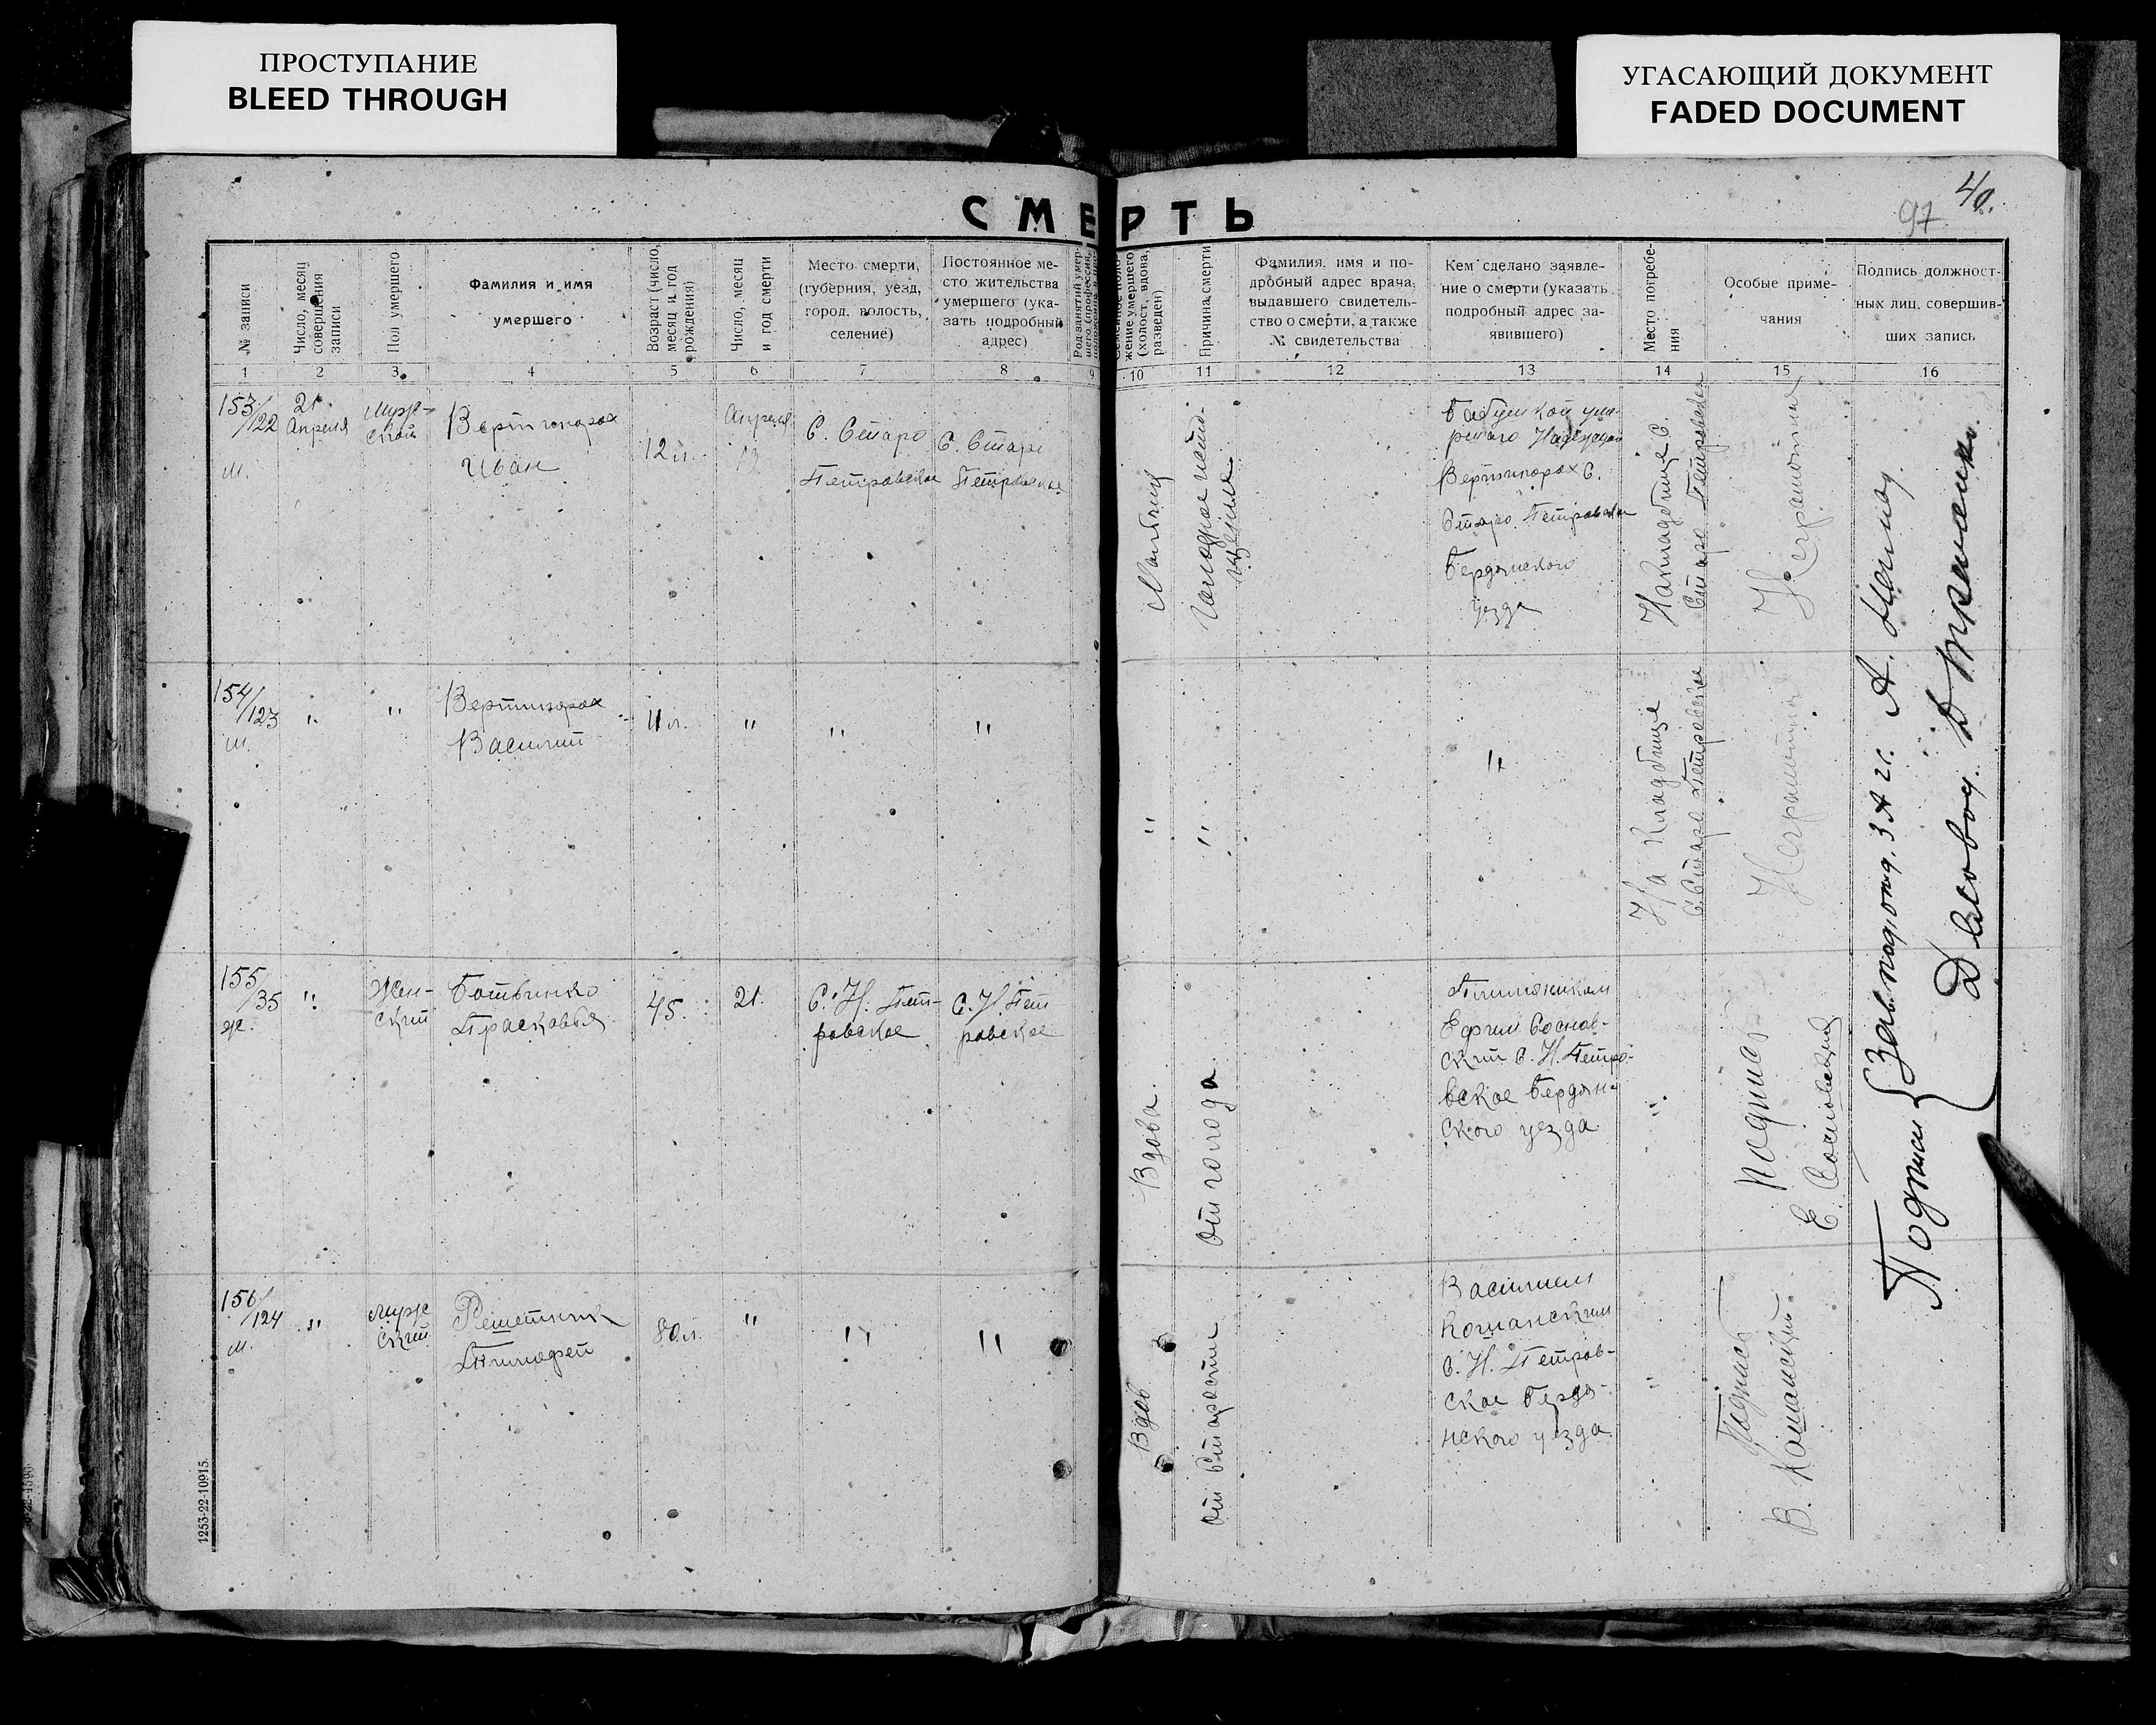 ПРОСТУПАНИЕ
BLEED THROUGH
УГАСАЮЩИЙ ДОКУМЕНТ
FADED DOCUMENT
40.
97
СМЕРТЬ
№ записи
Число, месяц
совершения
записи
Пол умершего
Фамилия и имя
умершего
Возраст (число,
месяц и год
рождения)
Число, месяц
и год смерти
Место смерти,
(губерния, уезд,
город, волость,
селение)
Постоянное ме-
сто жительства
умершего (ука-
зать подробный
адрес)
жение умершего
(холост, вдова,
разведен)
Причина смерти
Фамилия, имя и по-
дробный адрес врача,
выдавшего свидетель-
ство о смерти, а также
№ свидетельства
Кем сделано заявле-
ние о смерти (указать
подробный адрес за-
явившего)
Место погребе-
ния
Особые приме-
чания
Подпись должност-
ных лиц, совершив-
ших запись
1 2 3 4 5 6 7 8 9 10 11 12 13 14 15 16
153/122
м.
21
Апреля
Муж-
ской
Вертипорох
Иван
12 л.
Апреля
С. Старо
Петровское
С. Старо
Петровское
Бабушкой уме-
ршаго
Вертипорох С.
Старо Петровское
Бердянского
уезда
На кладбище С.
Старо Петровское
Неграмотная
154/123
м.
"
"
Вертипорох
Василий
11 л.
"
"
"
"
"
"
На кладбище
С Старо Петровское
Неграмотная
155/35
ж.
"
Жен-
ский
Ботвинко
Прасковья
45.
21.
С. Н. Пет-
ровское
С. Н. Пет
ровское
Вдова
От голода
Племяником
Ефим Соснов-
ский С. Н. Петро-
вское Бердян-
ского уезда
"
Подпись
Е. Сосновский
156/124
м.
"
Муж
ский
Решетник
Тимофей
80 л.
"
"
"
Вдов
От Старости
Василием
Кошанским
С. Н. Петров-
ское Бердя-
нского уезда
"
Подпись
В. Кошанский
Подписи
Зав. подотд. ЗАГС. А.
Деловод.
1253-22-10915.